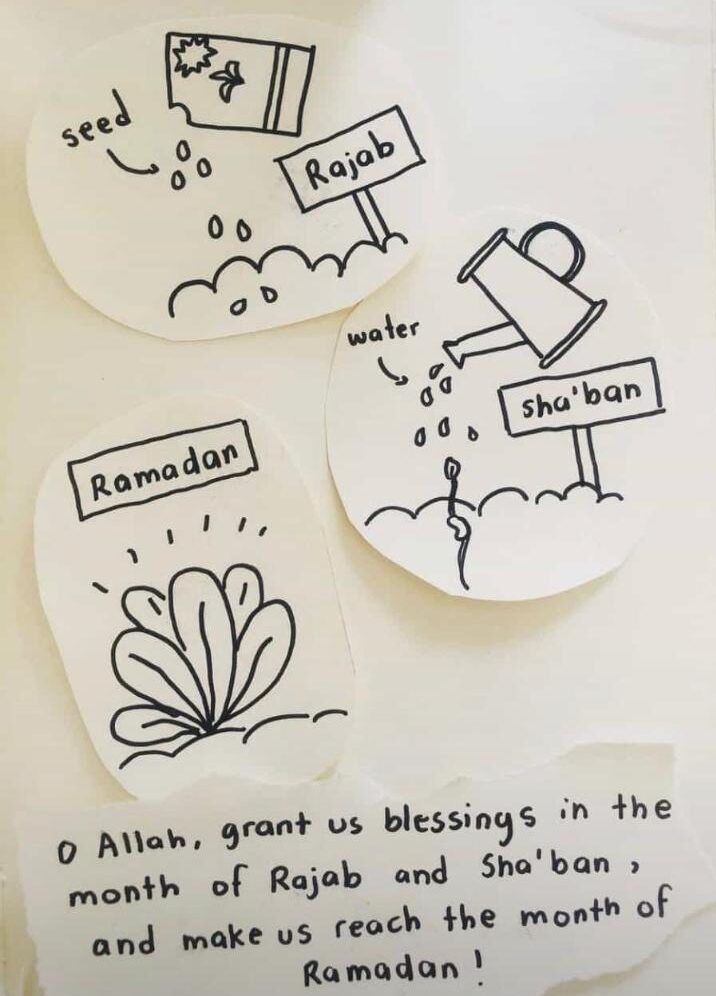 seed
Rajab
water
sha'ban
Ramadan
O Allah, grant us blessings in the
month of Rajab and Sha'ban ,
and make us reach the month of
Ramadan !